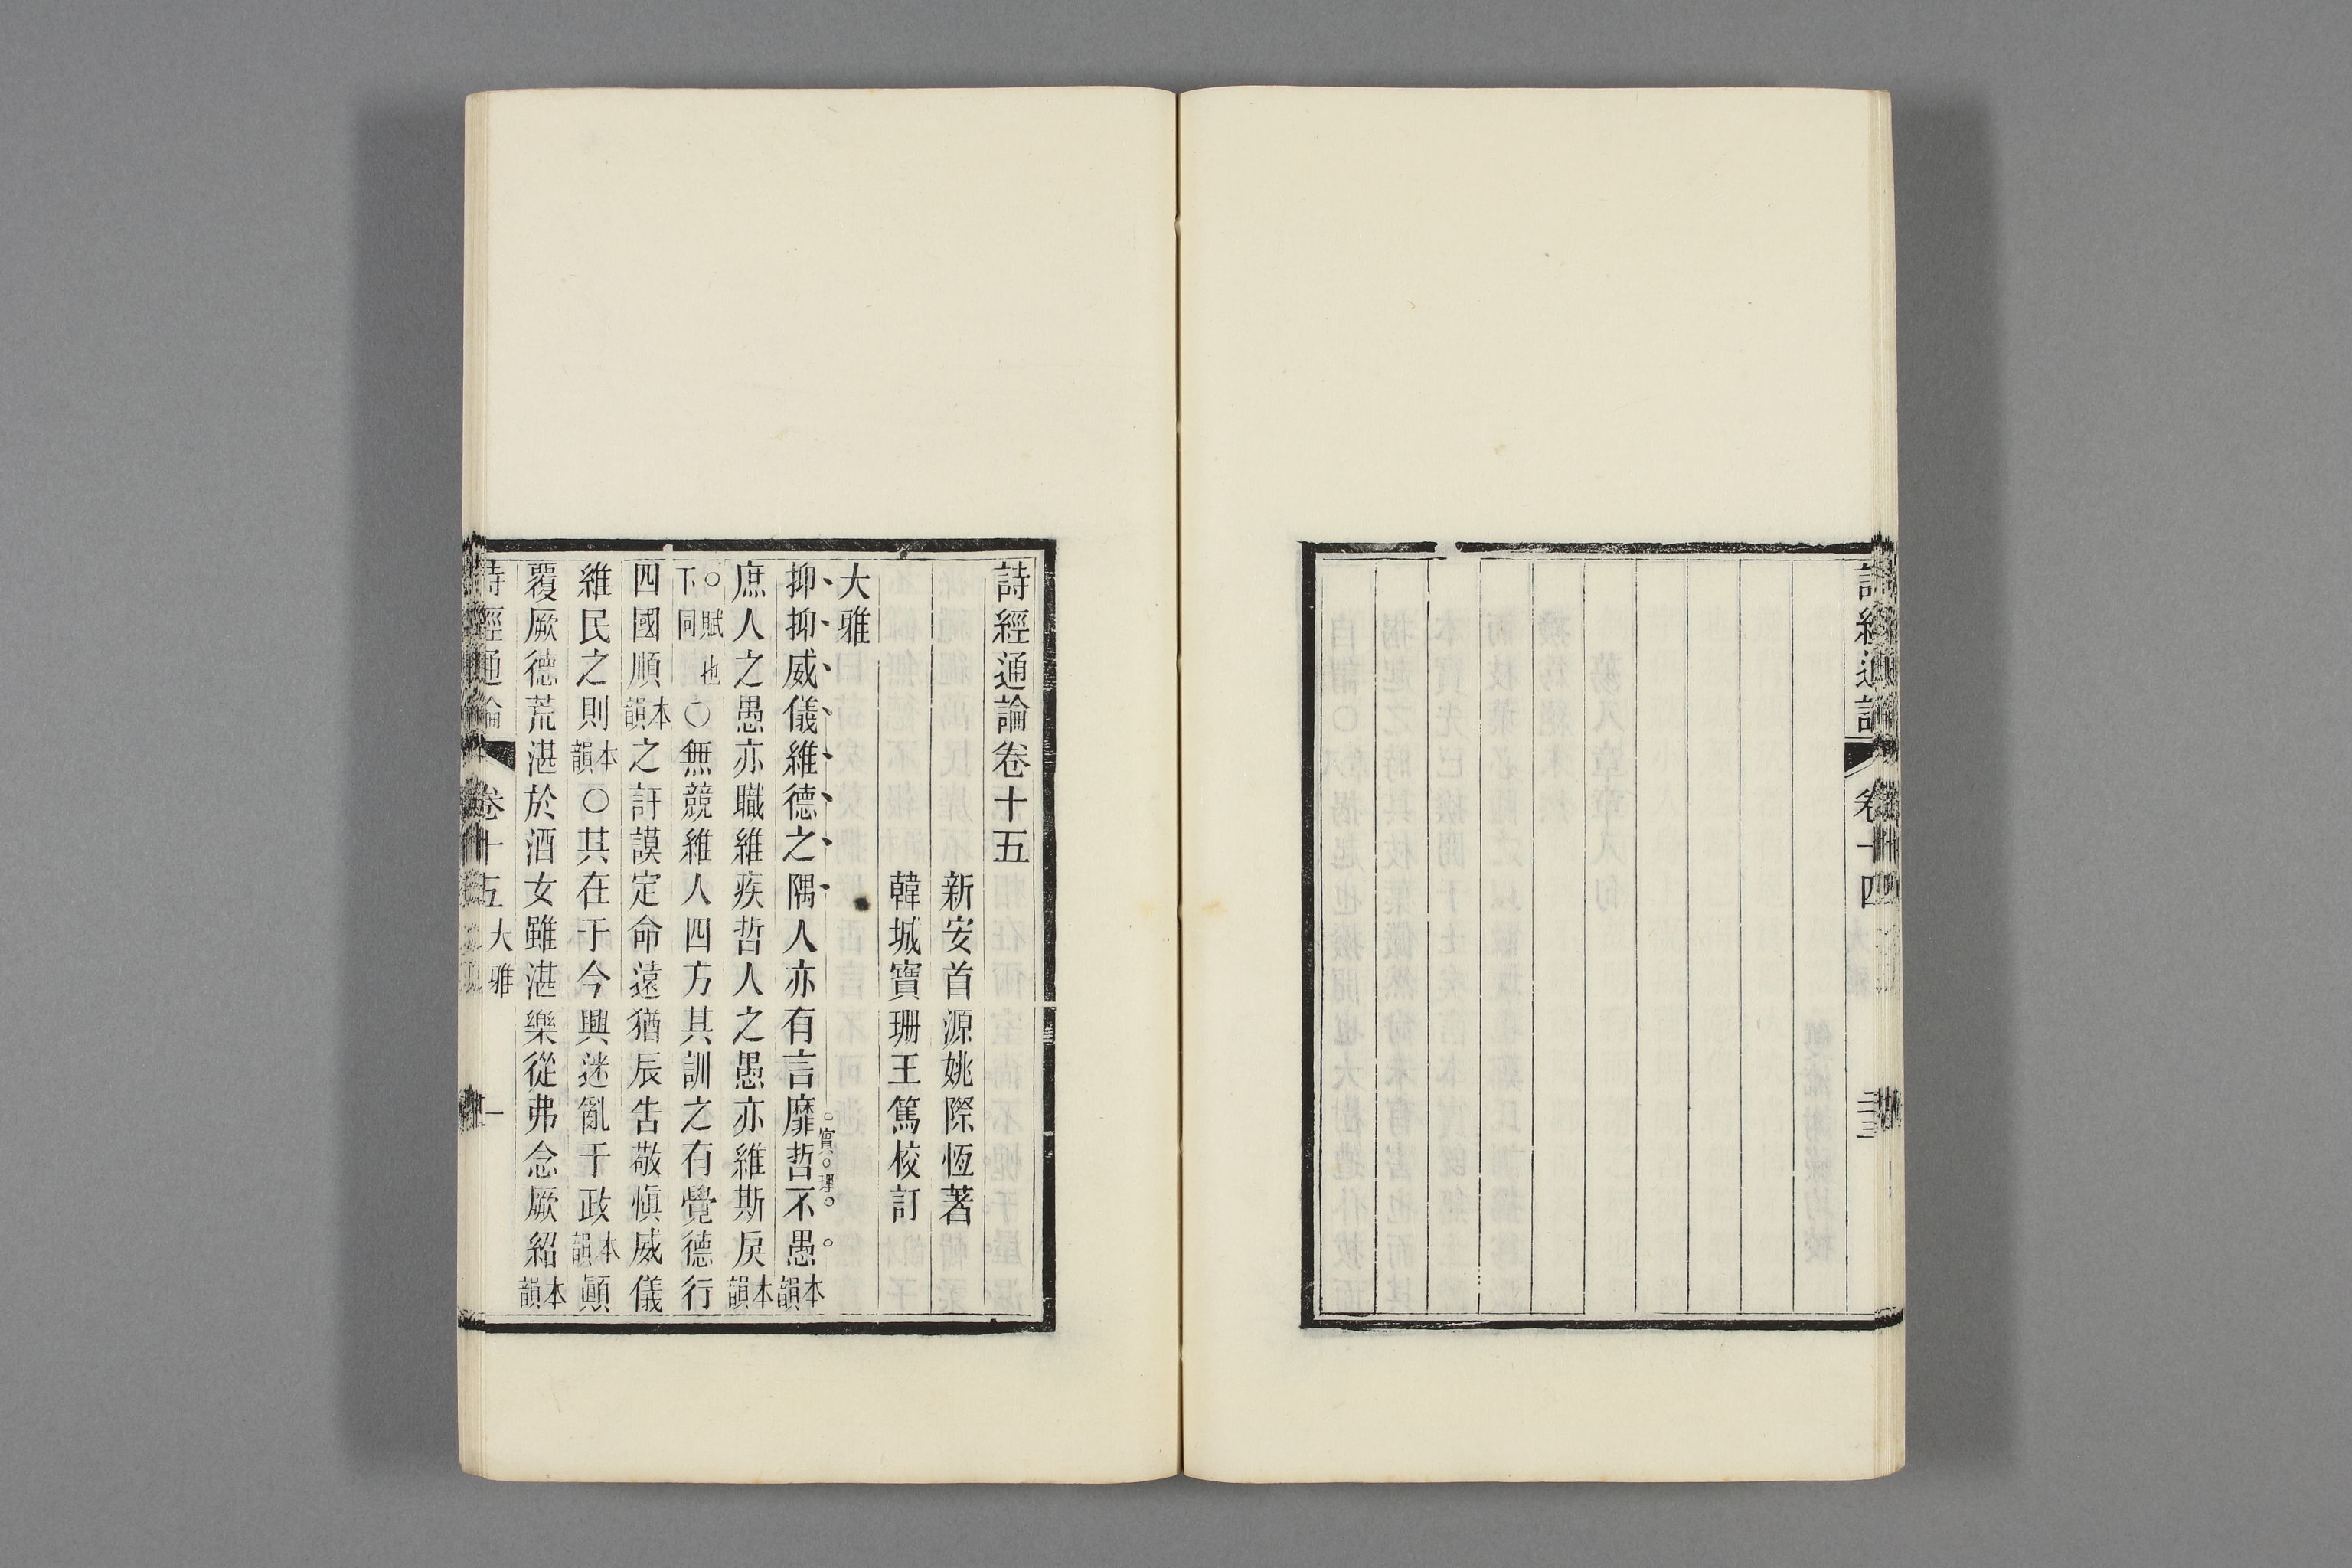 詩經通論 卷十四
詩經通論卷十五
新安首源姚際恆著
韓城寶珊王篤校訂
大雅
抑抑威儀維德之隅人亦有言靡哲不愚本韻
實理
庶人之愚亦職維疾哲人之愚亦維斯戾本韻
○賦也下同○無競維人四方其訓之有覺德行
四國順本韻之訏謨定命遠猶辰告敬慎威儀
維民之則本韻○其在于今興迷亂于政本韻顛
覆厥德荒湛於酒女雖湛樂從弗念厥紹本韻
詩經通論 卷十五 大雅 一